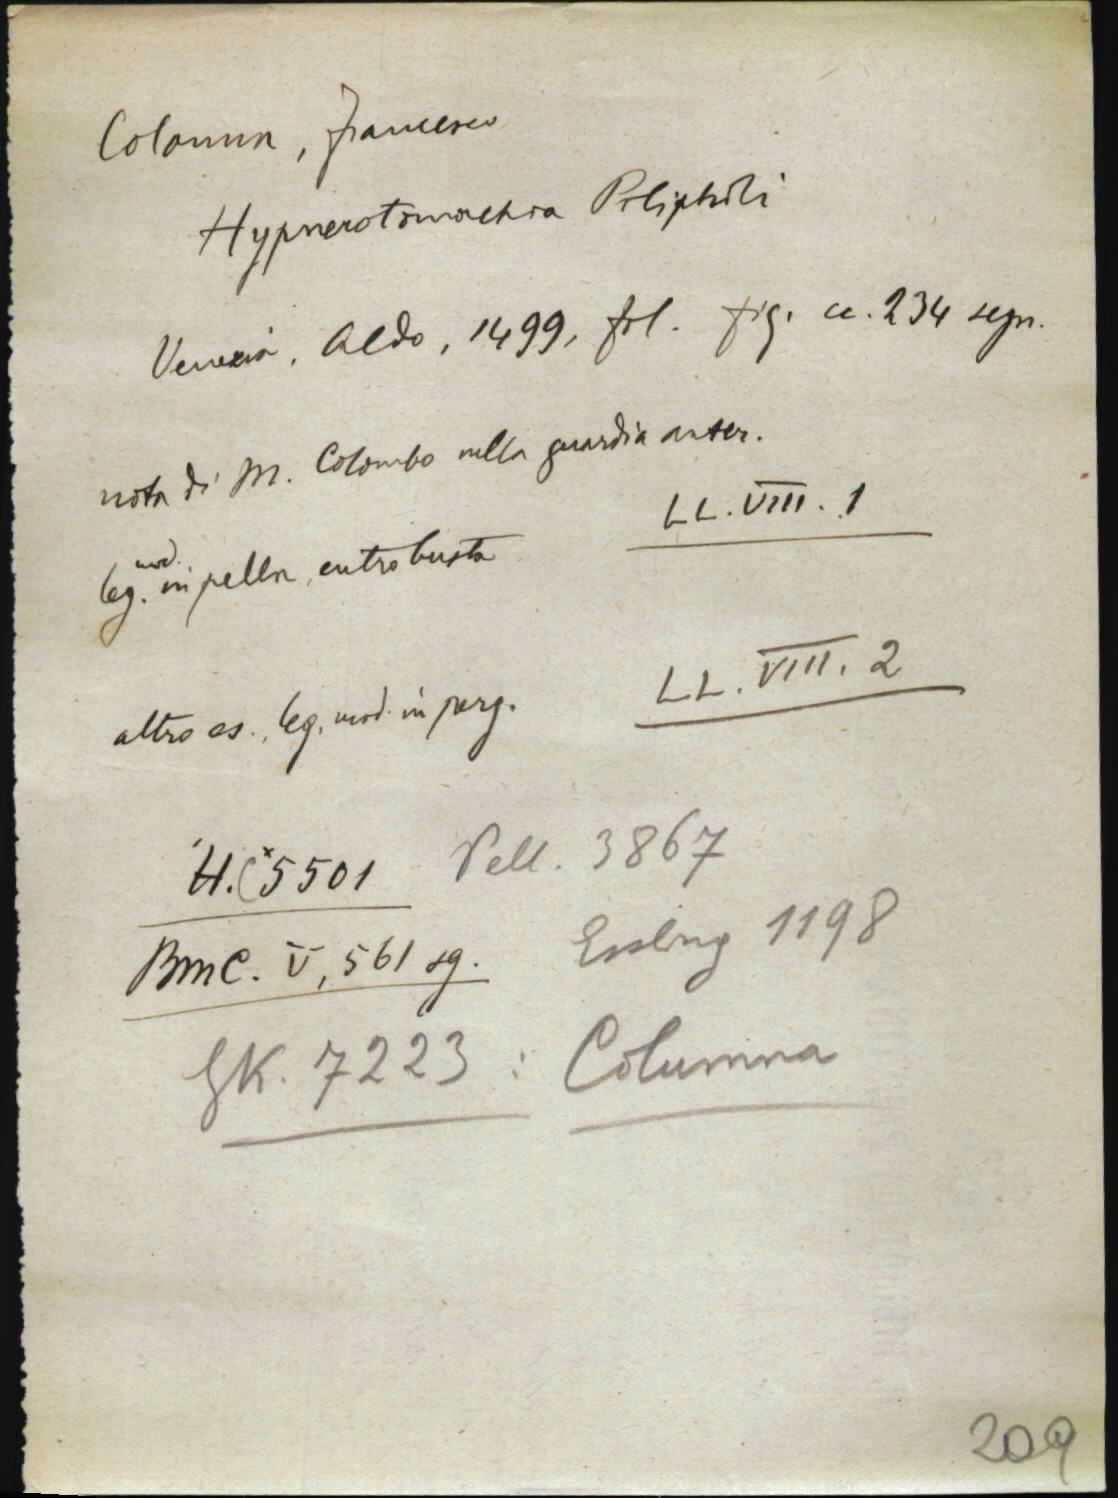 Colonna, Francesco
Hypnerotomachia Poliphili
Venezia, Aldo, 1499, fol. fig. cc. 234 segn.
nota di M. Colombo nella guardia anter.
LL. VIII. 1
leg. mod. in pelle, entro busta
LL. VIII. 2
altro es., leg. mod. in perg.
H.C*5501 Pell. 3867
BMC. V, 561 sg. Essling 1198
GK. 7223 : Columna
209